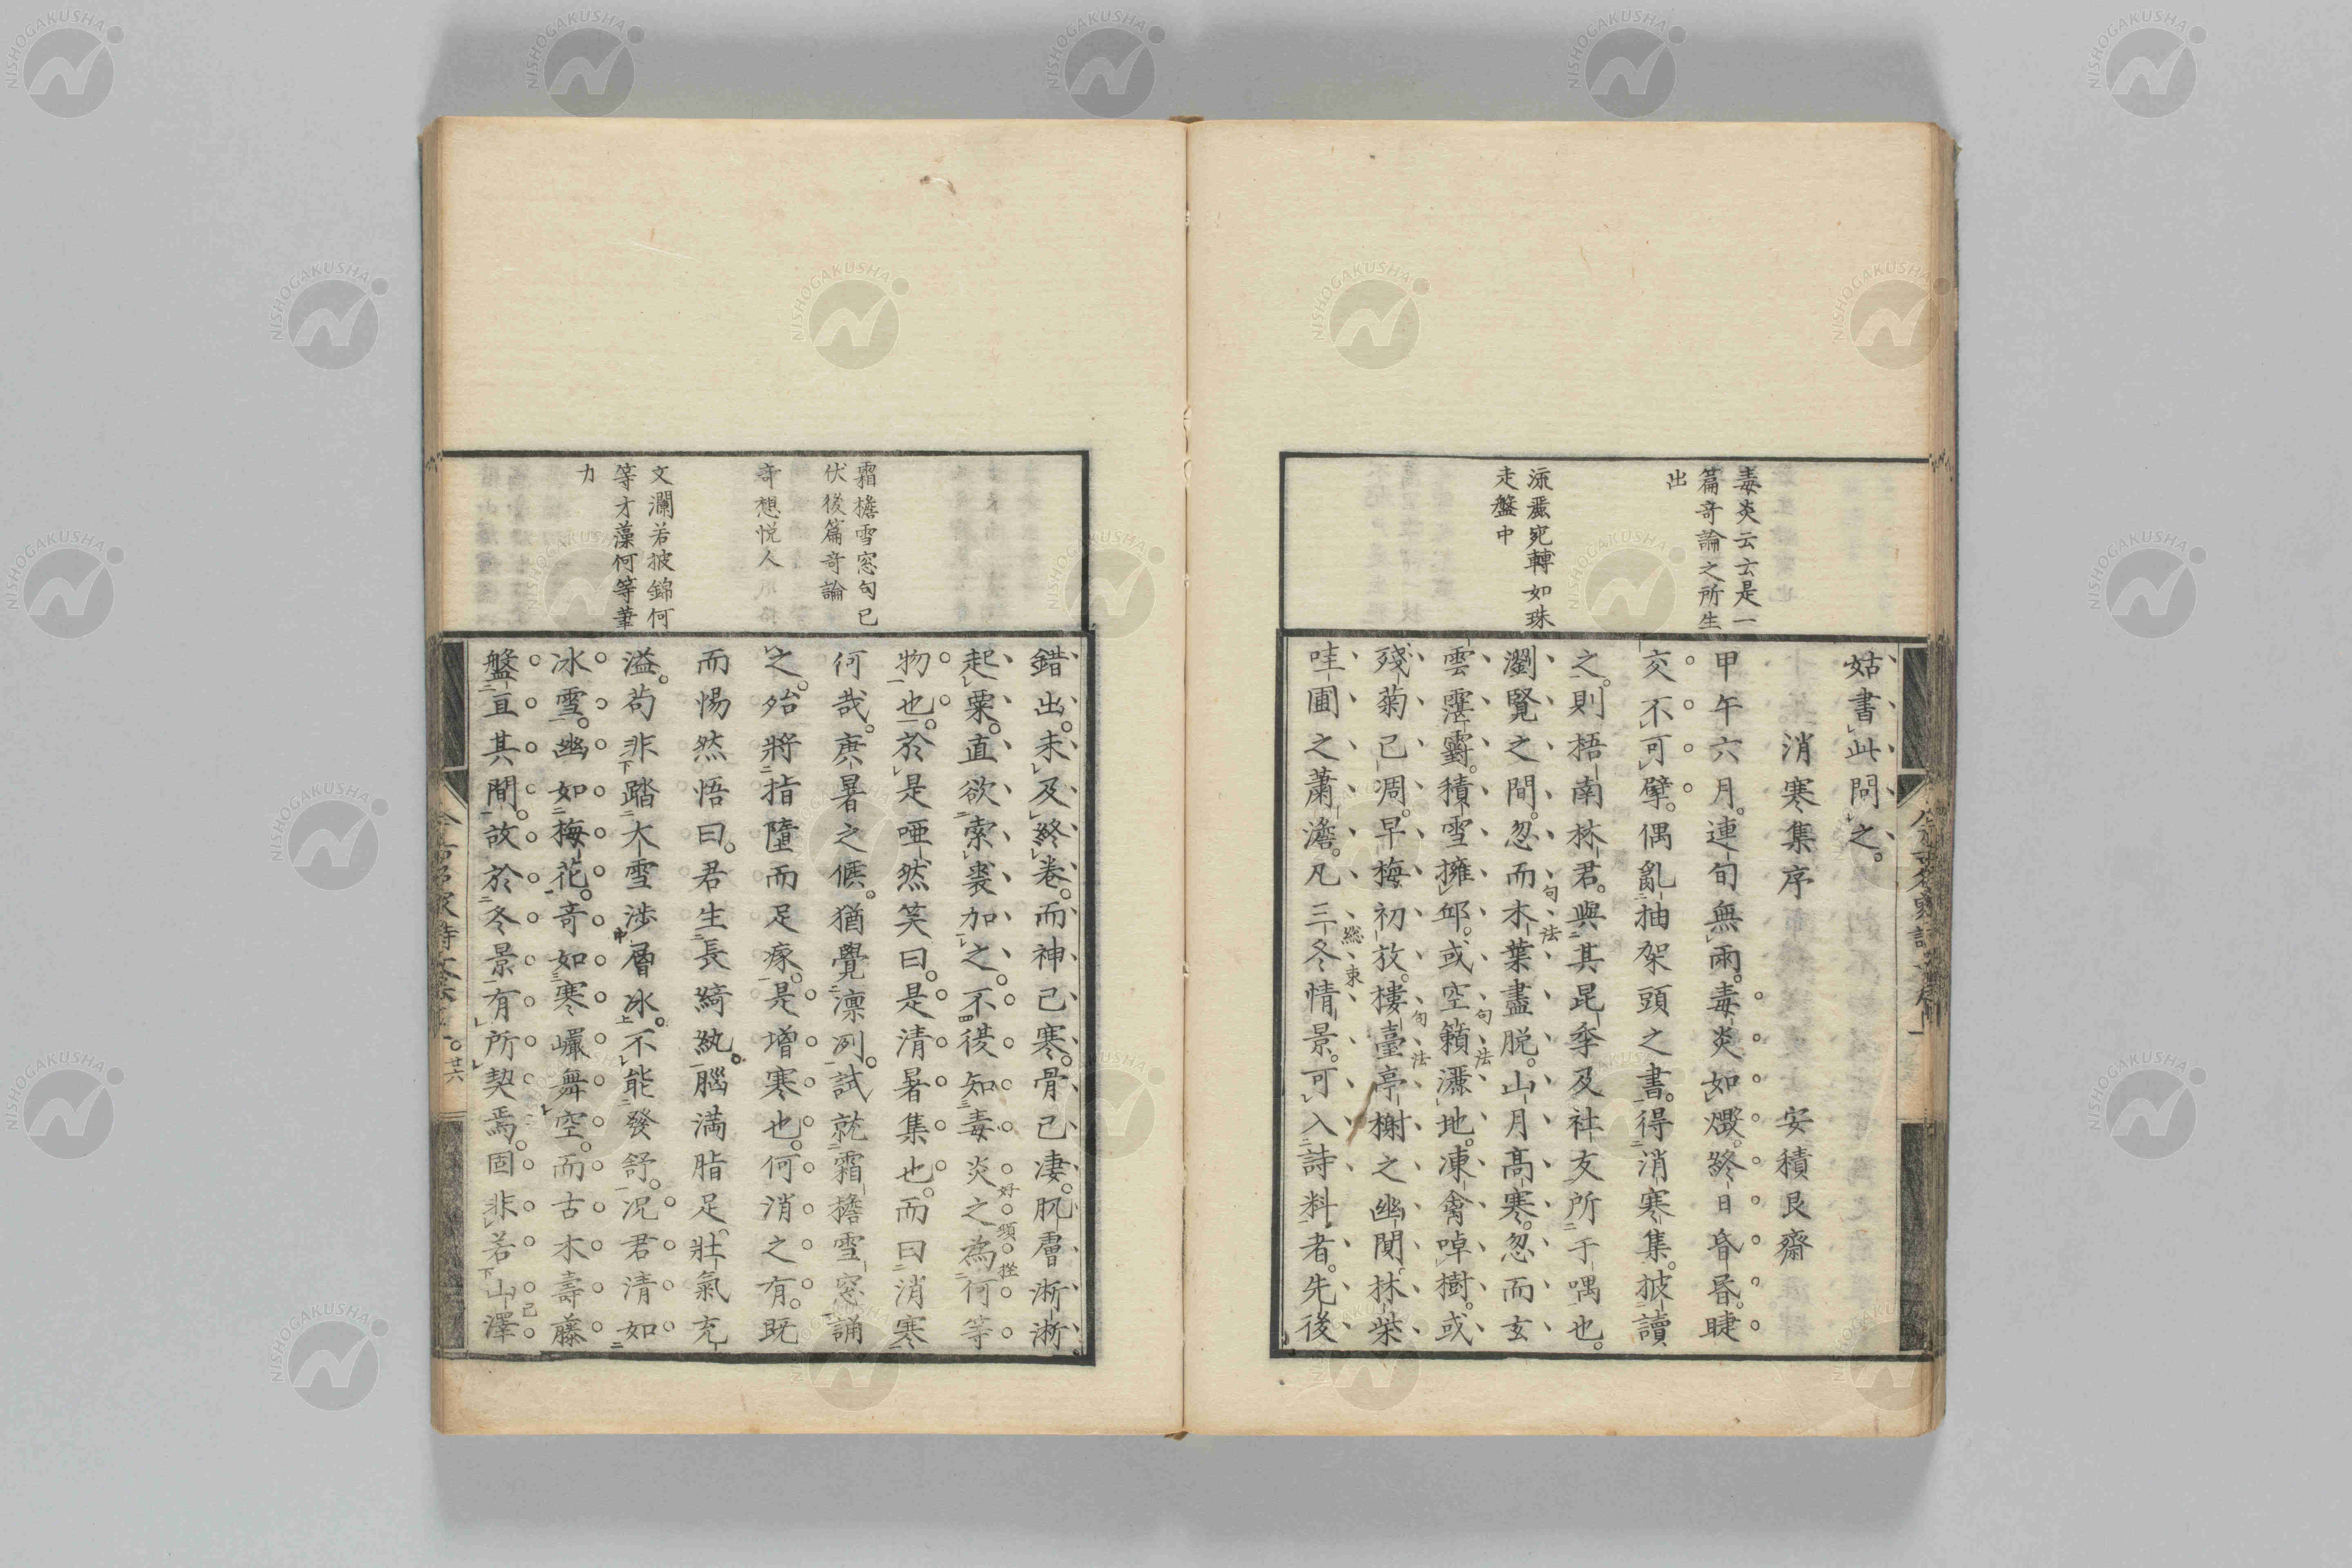 毒炎云云是一
篇奇論之所生
出
流盪宛轉如珠
走盤中
姑書此問之。
消寒集序　安積艮齋
甲午六月。連旬無雨。毒炎如燬。終日昏昏。睫
交不可擘。偶亂抽架頭之書。得消寒集。披讀
之。則梧南林君。與其昆季及社友所于喁也。
瀏覽之間。忽而木葉盡脱。山月高寒。忽而玄
雲霮䨴。積雪擁邱。或空籟灑地。凍禽啅樹。或
殘菊已凋。早梅初放。樓臺亭榭之幽閴。林柴
哇圃之蕭澹。凡三冬情景。可入詩料者。先後
句法
句法
句法
總束
霜檐雪窓句已
伏後篇奇論
奇想悦人
文瀾若披錦何
等才藻何等筆
力
錯出。未及終卷。而神已寒。骨已凄。肌膚淅淅
起粟。直欲索裘加之。不復知毒炎之為何等
物也。於是啞然笑曰。是清暑集也。而曰消寒
何哉。庚暑之候。猶覺凛冽。試就霜檐雪窓誦
之。殆將指墮而足瘃。是増寒也。何消之有。既
而惕然悟曰。君生長綺紈。腦満脂足。壯氣充
溢。苟非踏大雪渉層冰。不能發舒。况君清如
冰雪。幽如梅花。奇如寒巘舞空。而古木壽藤
盤亘其間。故於冬景有所契焉。固非若山澤
好頭拴
廿六